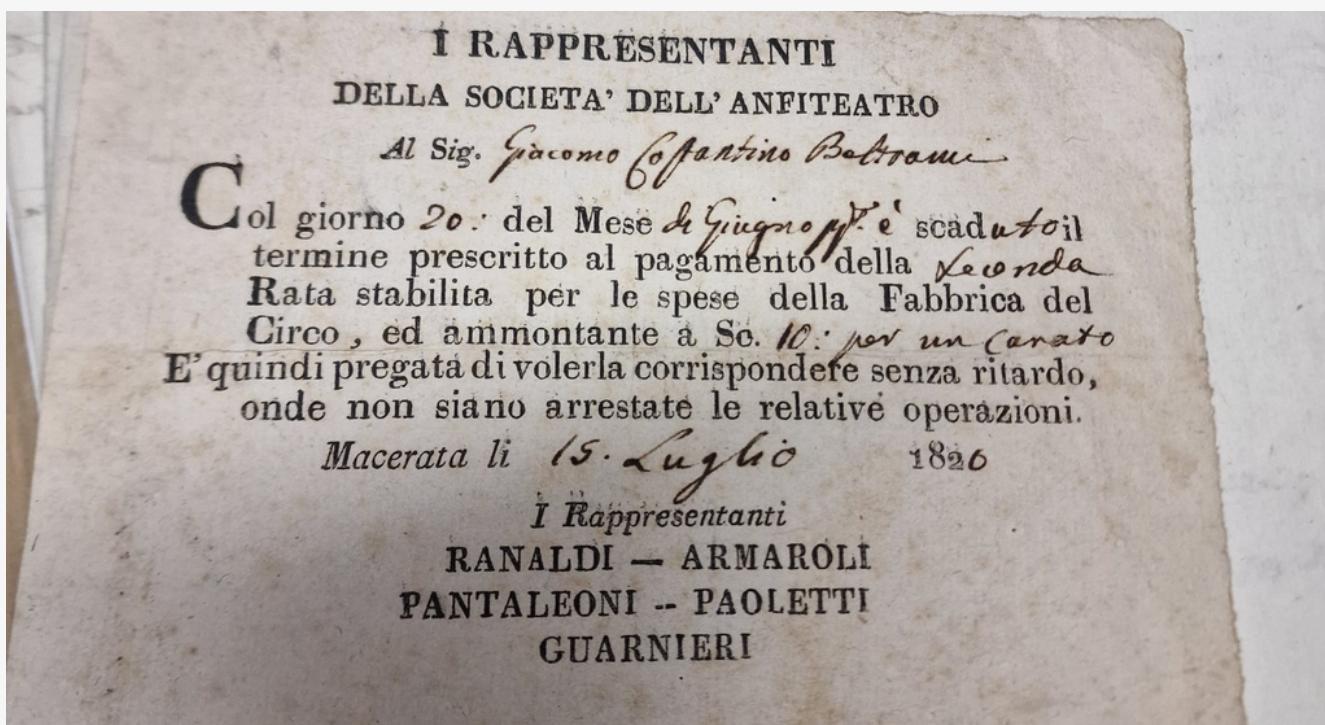 I RAPPRESENTANTI
DELLA SOCIETA' DELL' ANFITEATRO
Al Sig. Giacomo Costantino Beltrami
Col giorno 20: del Mese di Giugno ppº. è scaduto il
termine prescritto al pagamento della Seconda
Rata stabilita per le spese della Fabbrica del
Circo, ed ammontante a Sc. 10: per un Carato
E' quindi pregata di volerla corrispondere senza ritardo,
onde non siano arrestate le relative operazioni.
Macerata li 15. Luglio 1820
I Rappresentanti
RANALDI — ARMAROLI
PANTALEONI -- PAOLETTI
GUARNIERI